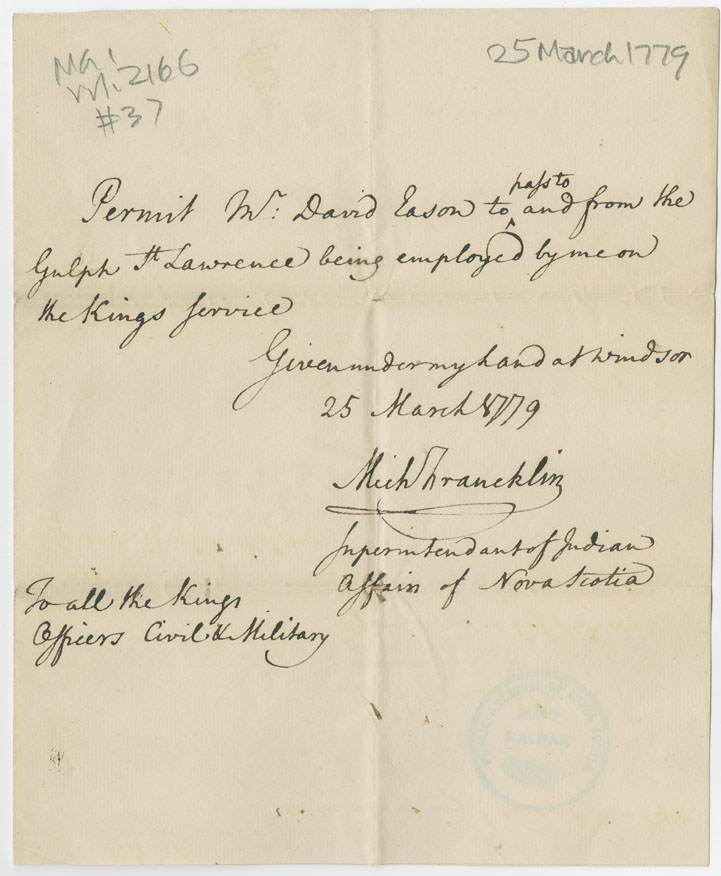 MG 1
Vol. 2166
#37
25 March 1779
pass to
Permit Mr: David Eason to ^ and from the
Gulph St Lawrence being employed by me on
the Kings service
Given under my hand at Windsor
25 March 1779
Mich Francklin
Superintendant of Indian
Affairs of Nova Scotia
To all the Kings
Officers Civil & Military